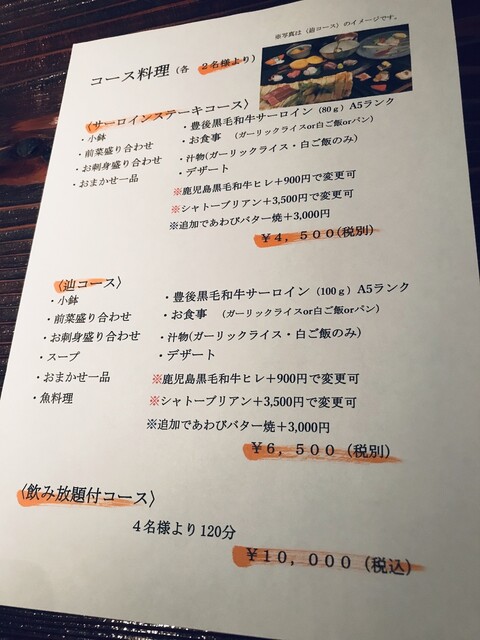 ※写真は〈辿コース〉のイメージです。
コース料理(各 2名様より)
〈サーロインステーキコース〉
・小鉢
・前菜盛り合わせ
・お刺身盛り合わせ
・おまかせ一品
・豊後黒毛和牛サーロイン(80g)A5ランク
・お食事 (ガーリックライスor白ご飯orパン)
・汁物(ガーリックライス・白ご飯のみ)
・デザート
※鹿児島黒毛和牛ヒレ+900円で変更可
※シャトーブリアン+3,500円で変更可
※追加であわびバター焼+3,000円
¥4,500(税別)
〈辿コース〉
・小鉢
・前菜盛り合わせ
・お刺身盛り合わせ
・スープ
・おまかせ一品
・魚料理
・豊後黒毛和牛サーロイン(100g)A5ランク
・お食事 (ガーリックライスor白ご飯orパン)
・汁物(ガーリックライス・白ご飯のみ)
・デザート
※鹿児島黒毛和牛ヒレ+900円で変更可
※シャトーブリアン+3,500円で変更可
※追加であわびバター焼+3,000円
¥6,500(税別)
〈飲み放題付コース〉
4名様より120分
¥10,000(税込)